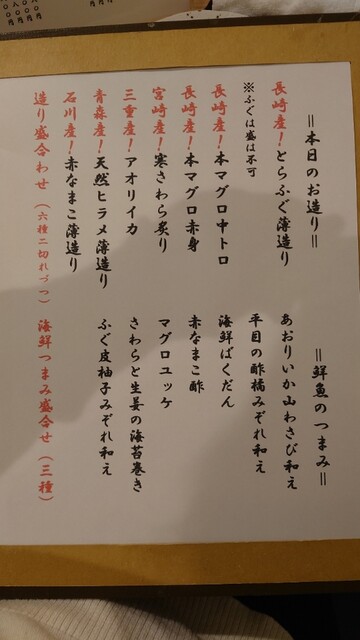 ＝本日のお造り＝
長崎産！とらふぐ薄造り
※ふぐは盛は不可
長崎産！本マグロ中トロ
長崎産！本マグロ赤身
宮崎産！寒さわら炙り
三重産！アオリイカ
青森産！天然ヒラメ薄造り
石川産！赤なまこ薄造り
造り盛合わせ（六種二切れづつ）
＝鮮魚のつまみ＝
あおりいか山わさび和え
平目の酢橘みぞれ和え
海鮮ばくだん
赤なまこ酢
マグロユッケ
さわらと生姜の海苔巻き
ふぐ皮柚子みぞれ和え
海鮮つまみ盛合せ（三種）